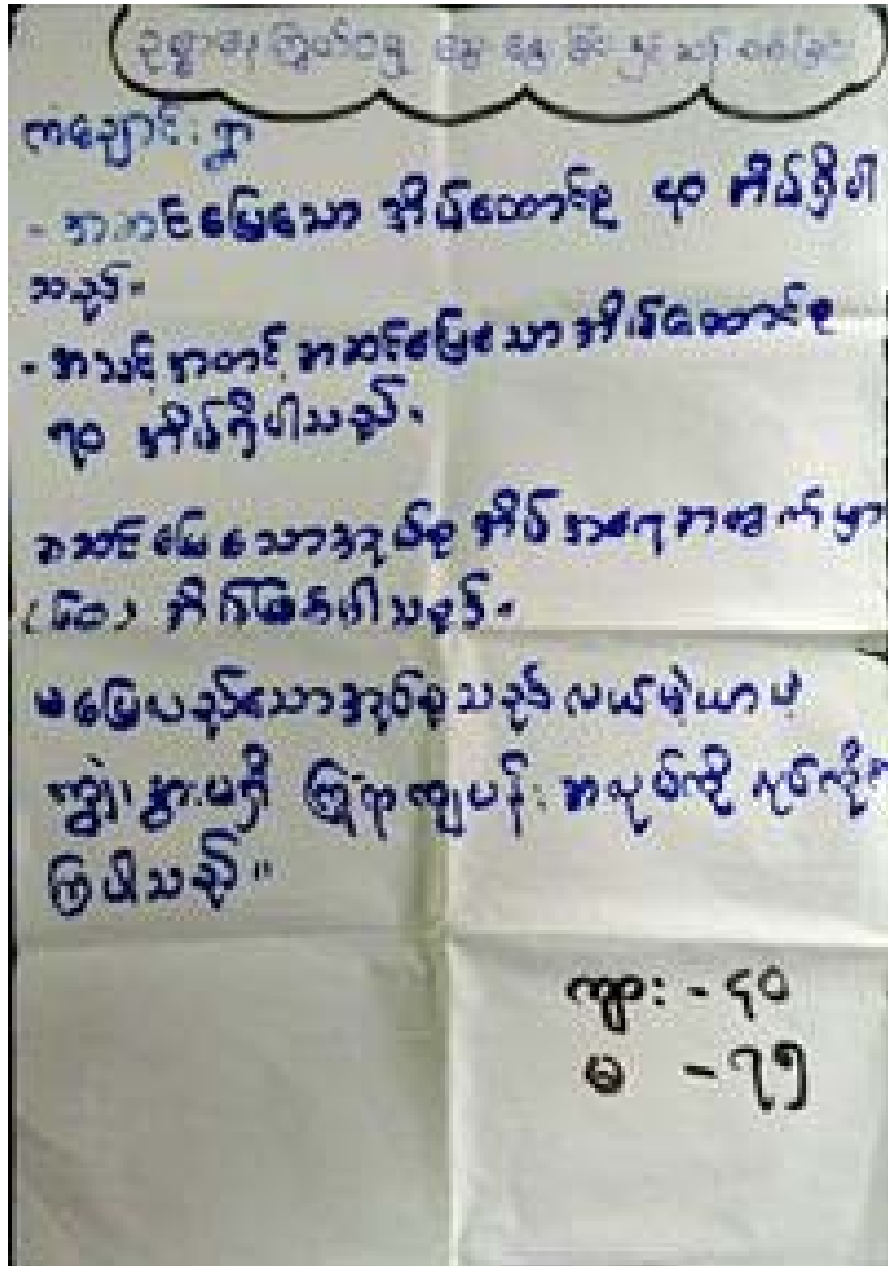 ဥစ္စာဓန ကြွယ်ဝမှု ဆွေးနွေး ခြင်း နှင့် သန်
ကံချောင်း ရွာ
- အဆင်ပြေသော အိမ်ထောင်စု ၅၀ အိမ်ရှိပါ
သည်။
- အသင့်အတင့် အဆင်ပြေသောအိမ်ထောင်စု
၇၀ အိမ်ရှိပါသည်။
အဆင်ပြေသောအုပ်စု အိမ် အရေအတွက်မှာ
အိမ်ဖြစ်ပါသည်။
မပြေလည်သောအုပ်စုသည် လယ်မဲ့ယာမဲ့
ကျွဲ၊နွားမရှိ ကြုံရာကျပန်း အလုပ်ကို လုပ်ကိုင်
ကြပါသည်။
ကျား - ၄၀
မ - ၇၅